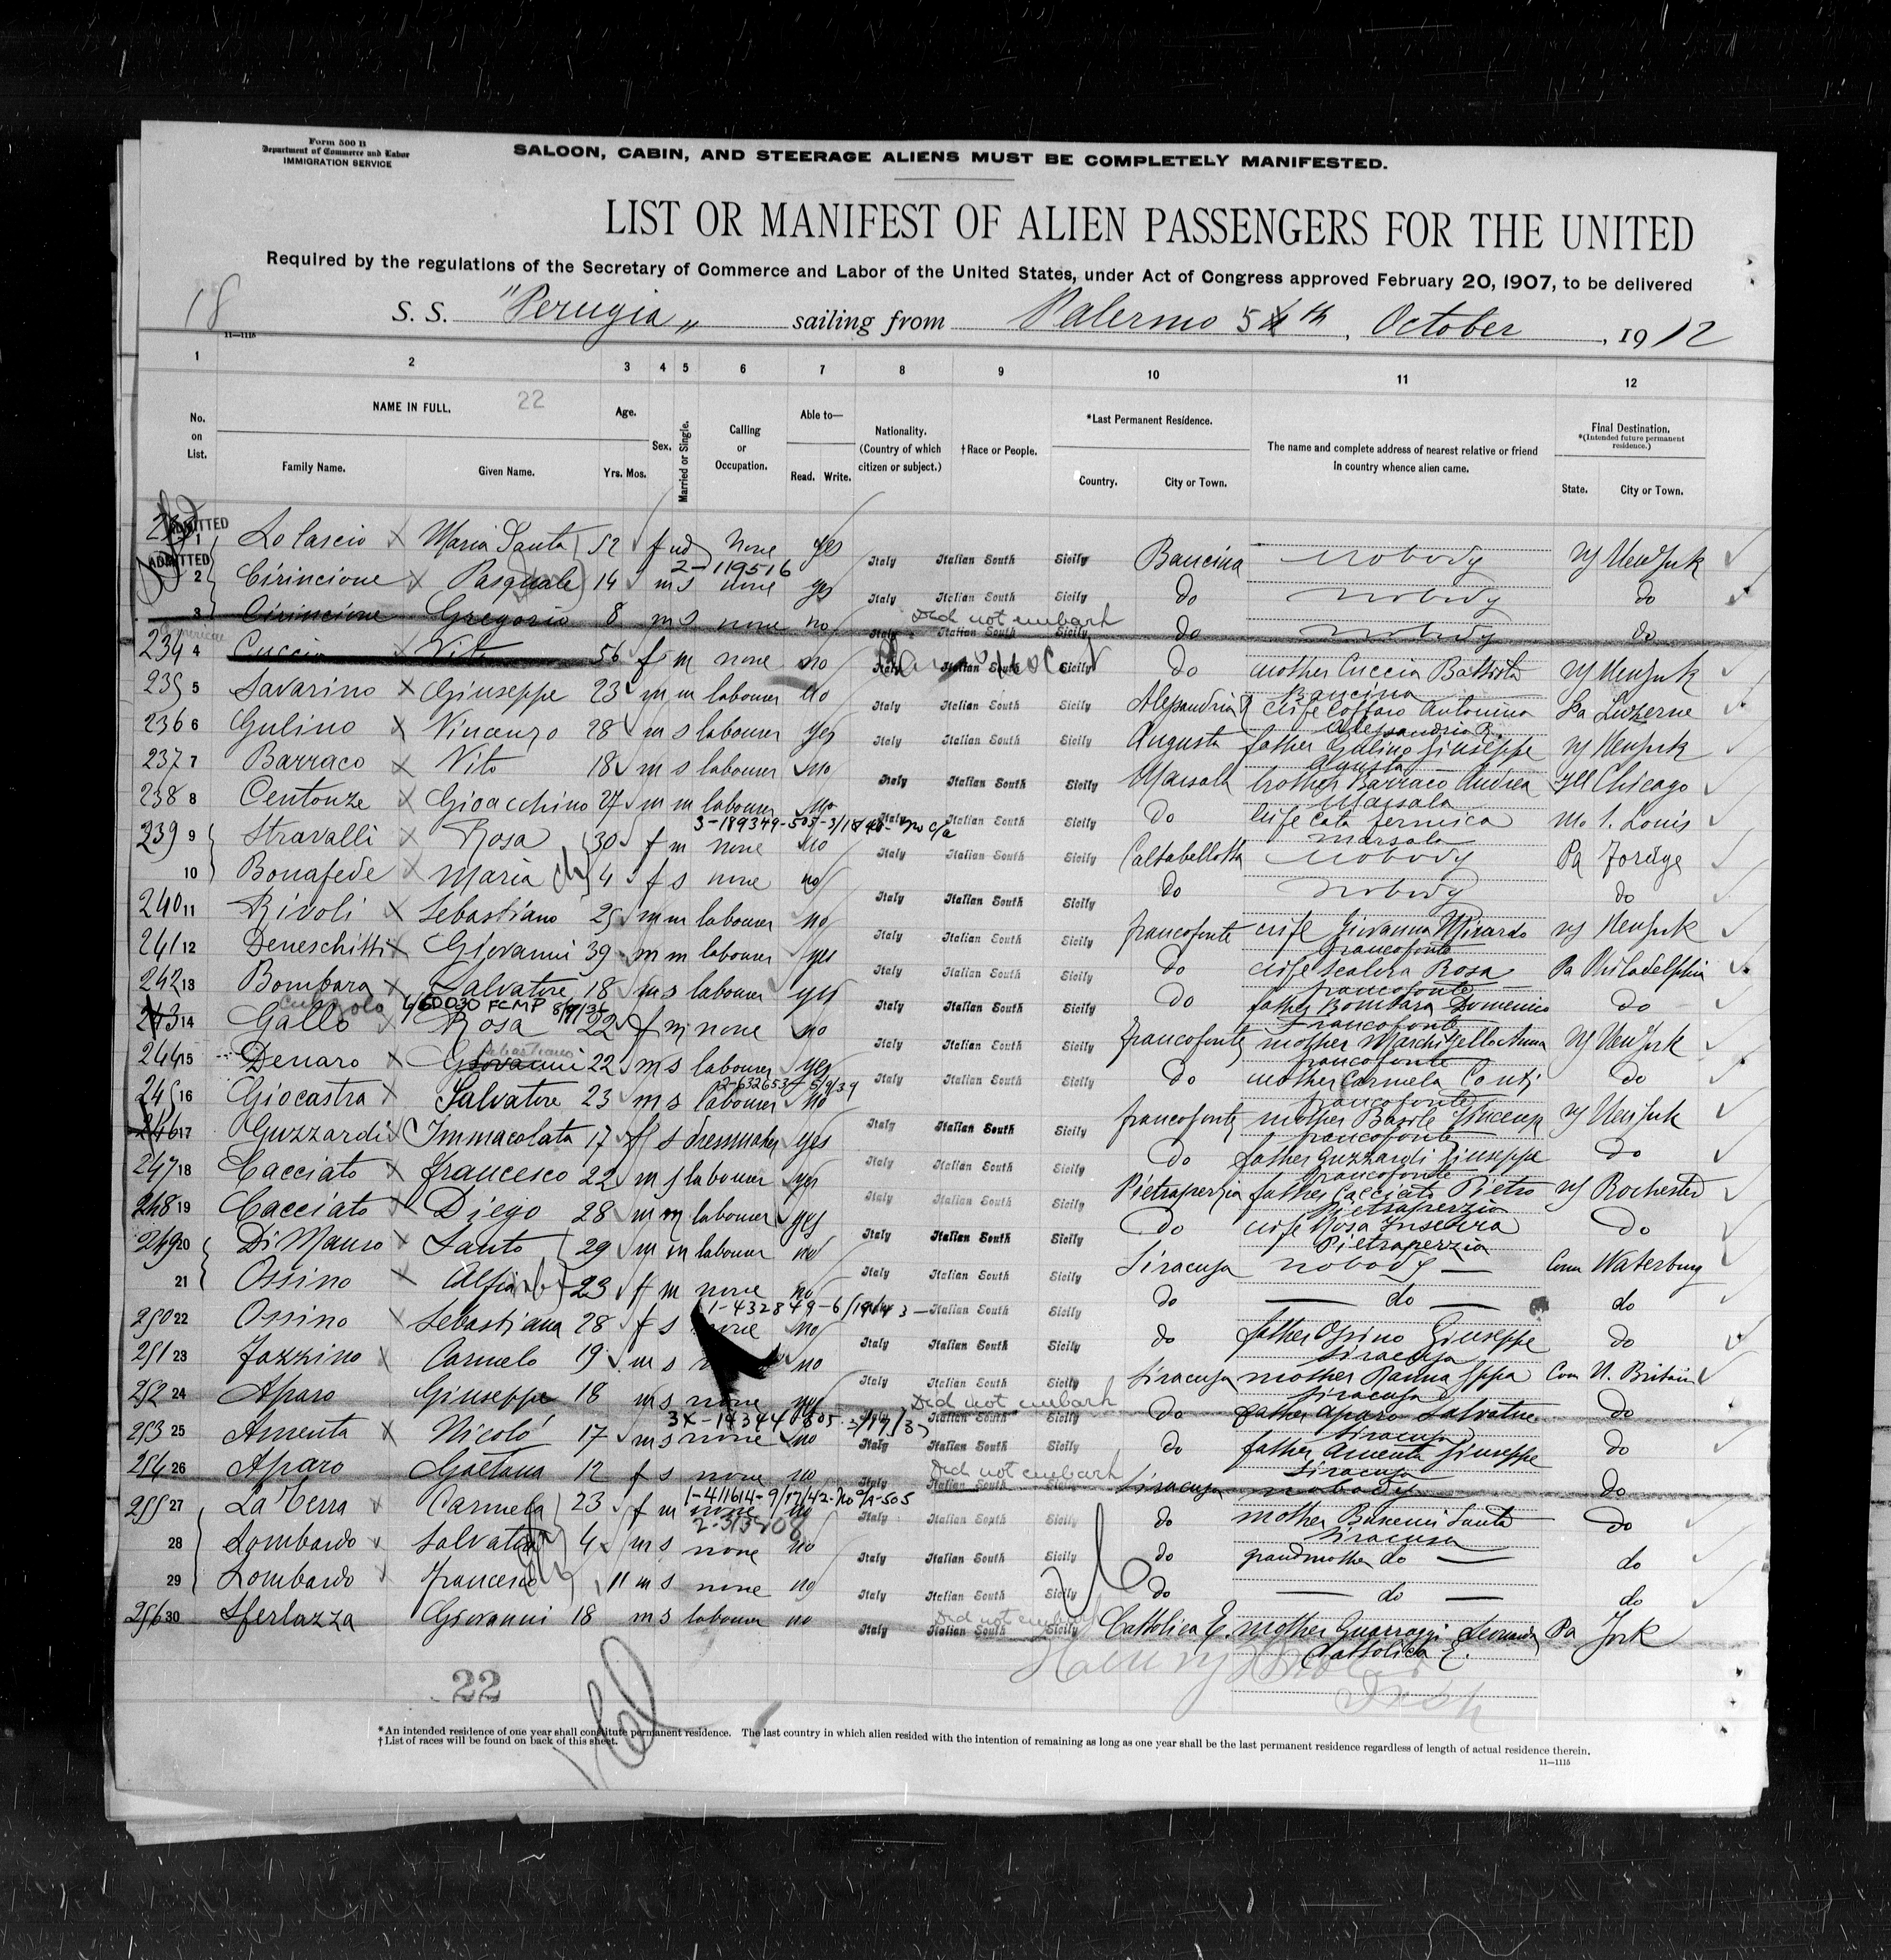 Form 500 B
Department of Commerce and Labor
IMMIGRATION SERVICE
SALOON, CABIN, AND STEERAGE ALIENS MUST BE COMPLETELY MANIFESTED.
LIST OR MANIFEST OF ALIEN PASSENGERS FOR THE UNITED
Required by the regulations of the Secretary of Commerce and Labor of the United States, under Act of Congress approved February 20, 1907, to be delivered
18 S. S. "Perugia" sailing from Palermo 5th, October, 1912
11—1115
1 2 3 4 5 6 7 8 9 10 11 12
No. on List. NAME IN FULL. 22 Family Name. Given Name. Age. Yrs. Mos. Sex. Married or Single. Calling or Occupation. Able to— Read. Write. Nationality. (Country of which citizen or subject.) †Race or People. *Last Permanent Residence. Country. City or Town. The name and complete address of nearest relative or friend in country whence alien came. Final Destination. *(Intended future permanent residence.) State. City or Town.
ADMITTED 1 Lo Cascio Maria Santa 52 f wd none yes Italy Italian South Sicily Baucina nobody NY NewYork
2-119516
ADMITTED 2 Cirincione Pasquale 14 m s none yes Italy Italian South Sicily do nobody do
Did not embark
3 Cirincione Gregorio 8 m s none no Italy Italian South Sicily do nobody do
234 4 Cuccia Vito 56 f m none no Italy Italian South Sicily do mother Cuccia Battista NY NewYork
Baucina
235 5 Savarino Giuseppe 23 m m labourer no Italy Italian South Sicily Alessandria R wife Coffaro Antonina Pa Luzerne
Alessandria R.
236 6 Gulino Vincenzo 28 m s labourer yes Italy Italian South Sicily Augusta father Gulino Giuseppe NY NewYork
Agusta
237 7 Barraco Vito 18 m s labourer no Italy Italian South Sicily Marsala brother Barraco Andrea Ill Chicago
Marsala
238 8 Centonze Gioacchino 27 m m labourer no Italy Italian South Sicily do wife Cata mo S. Louis
Marsala
3-189349-505-3/18/40- No C/A
239 9 Stravalli Rosa 30 f m none no Italy Italian South Sicily Caltabellotta nobody Pa
10 Bonafede Maria 4 f s none no Italy Italian South Sicily do nobody do
240 11 Rivoli Sebastiano 25 m m labourer no Italy Italian South Sicily francofonte wife Giovanna Mirardo NY NewYork
francofonte
241 12 Deneschitti Giovanni 39 m m labourer yes Italy Italian South Sicily do wife Scalera Rosa Pa Philadelphia
francofonte
242 13 Bombara Salvatore 18 m s labourer yes Italy Italian South Sicily do father Bombara Domenico do
francofonte
243 14 Gallo Rosa 22 f m none no Italy Italian South Sicily francofonte mother Anna NY NewYork
francofonte
Sebastiano
244 15 Denaro Giovanni 22 m s labourer yes Italy Italian South Sicily do mother Carmela Conti do
francofonte
2-632653-5/9/39
245 16 Giocastra Salvatore 23 m s labourer no Italy Italian South Sicily francofonte mother NY NewYork
francofonte
246 17 Guzzardi Immacolata 17 f s dressmaker yes Italy Italian South Sicily do father Guzzardi Giuseppe do
francofonte
247 18 Cacciato francesco 22 m s labourer yes Italy Italian South Sicily Pietraperzia father Cacciato Pietro NY Rochester
Pietraperzia
248 19 Cacciato Diego 28 m m labourer yes Italy Italian South Sicily do wife Rosa do
Pietraperzia
249 20 Di Mauro Santo 29 m m labourer no Italy Italian South Sicily Siracusa nobody Conn Waterbury
21 Ossino Alfia 23 f m none no Italy Italian South Sicily do do do
1-432849-6/1943
250 22 Ossino Sebastiana 28 f s none no Italy Italian South Sicily do father Ossino Giuseppe do
Siracusa
251 23 Fazzino Carmelo 19 m s no Italy Italian South Sicily Siracusa mother Conn N. Britain
Siracusa
Did not embark
252 24 Aparo Giuseppe 18 m s none no Italy Italian South Sicily do father Aparo Salvatore do
Siracusa
253 25 Amenta Nicolo 17 m s none no Italy Italian South Sicily do father Amenta Giuseppe do
Siracusa
Did not embark
254 26 Aparo Gaetana 12 f s none no Italy Italian South Sicily Siracusa nobody do
1-411614-9/17/42-No C/A-505
255 27 La Terra Carmela 23 f m none no Italy Italian South Sicily do mother Santa do
Siracusa
28 Lombardo Salvatore 4 m s none no Italy Italian South Sicily do grandmother do do
29 Lombardo francesco 11 m s none no Italy Italian South Sicily do do do
Did not embark
256 30 Sferlazza Giovanni 18 m s labourer no Italy Italian South Sicily Cattolica E. mother Guarraggi Leonarda Pa York
Cattolica E.
22
*An intended residence of one year shall constitute permanent residence. The last country in which alien resided with the intention of remaining as long as one year shall be the last permanent residence regardless of length of actual residence therein.
†List of races will be found on back of this sheet.
11—1115